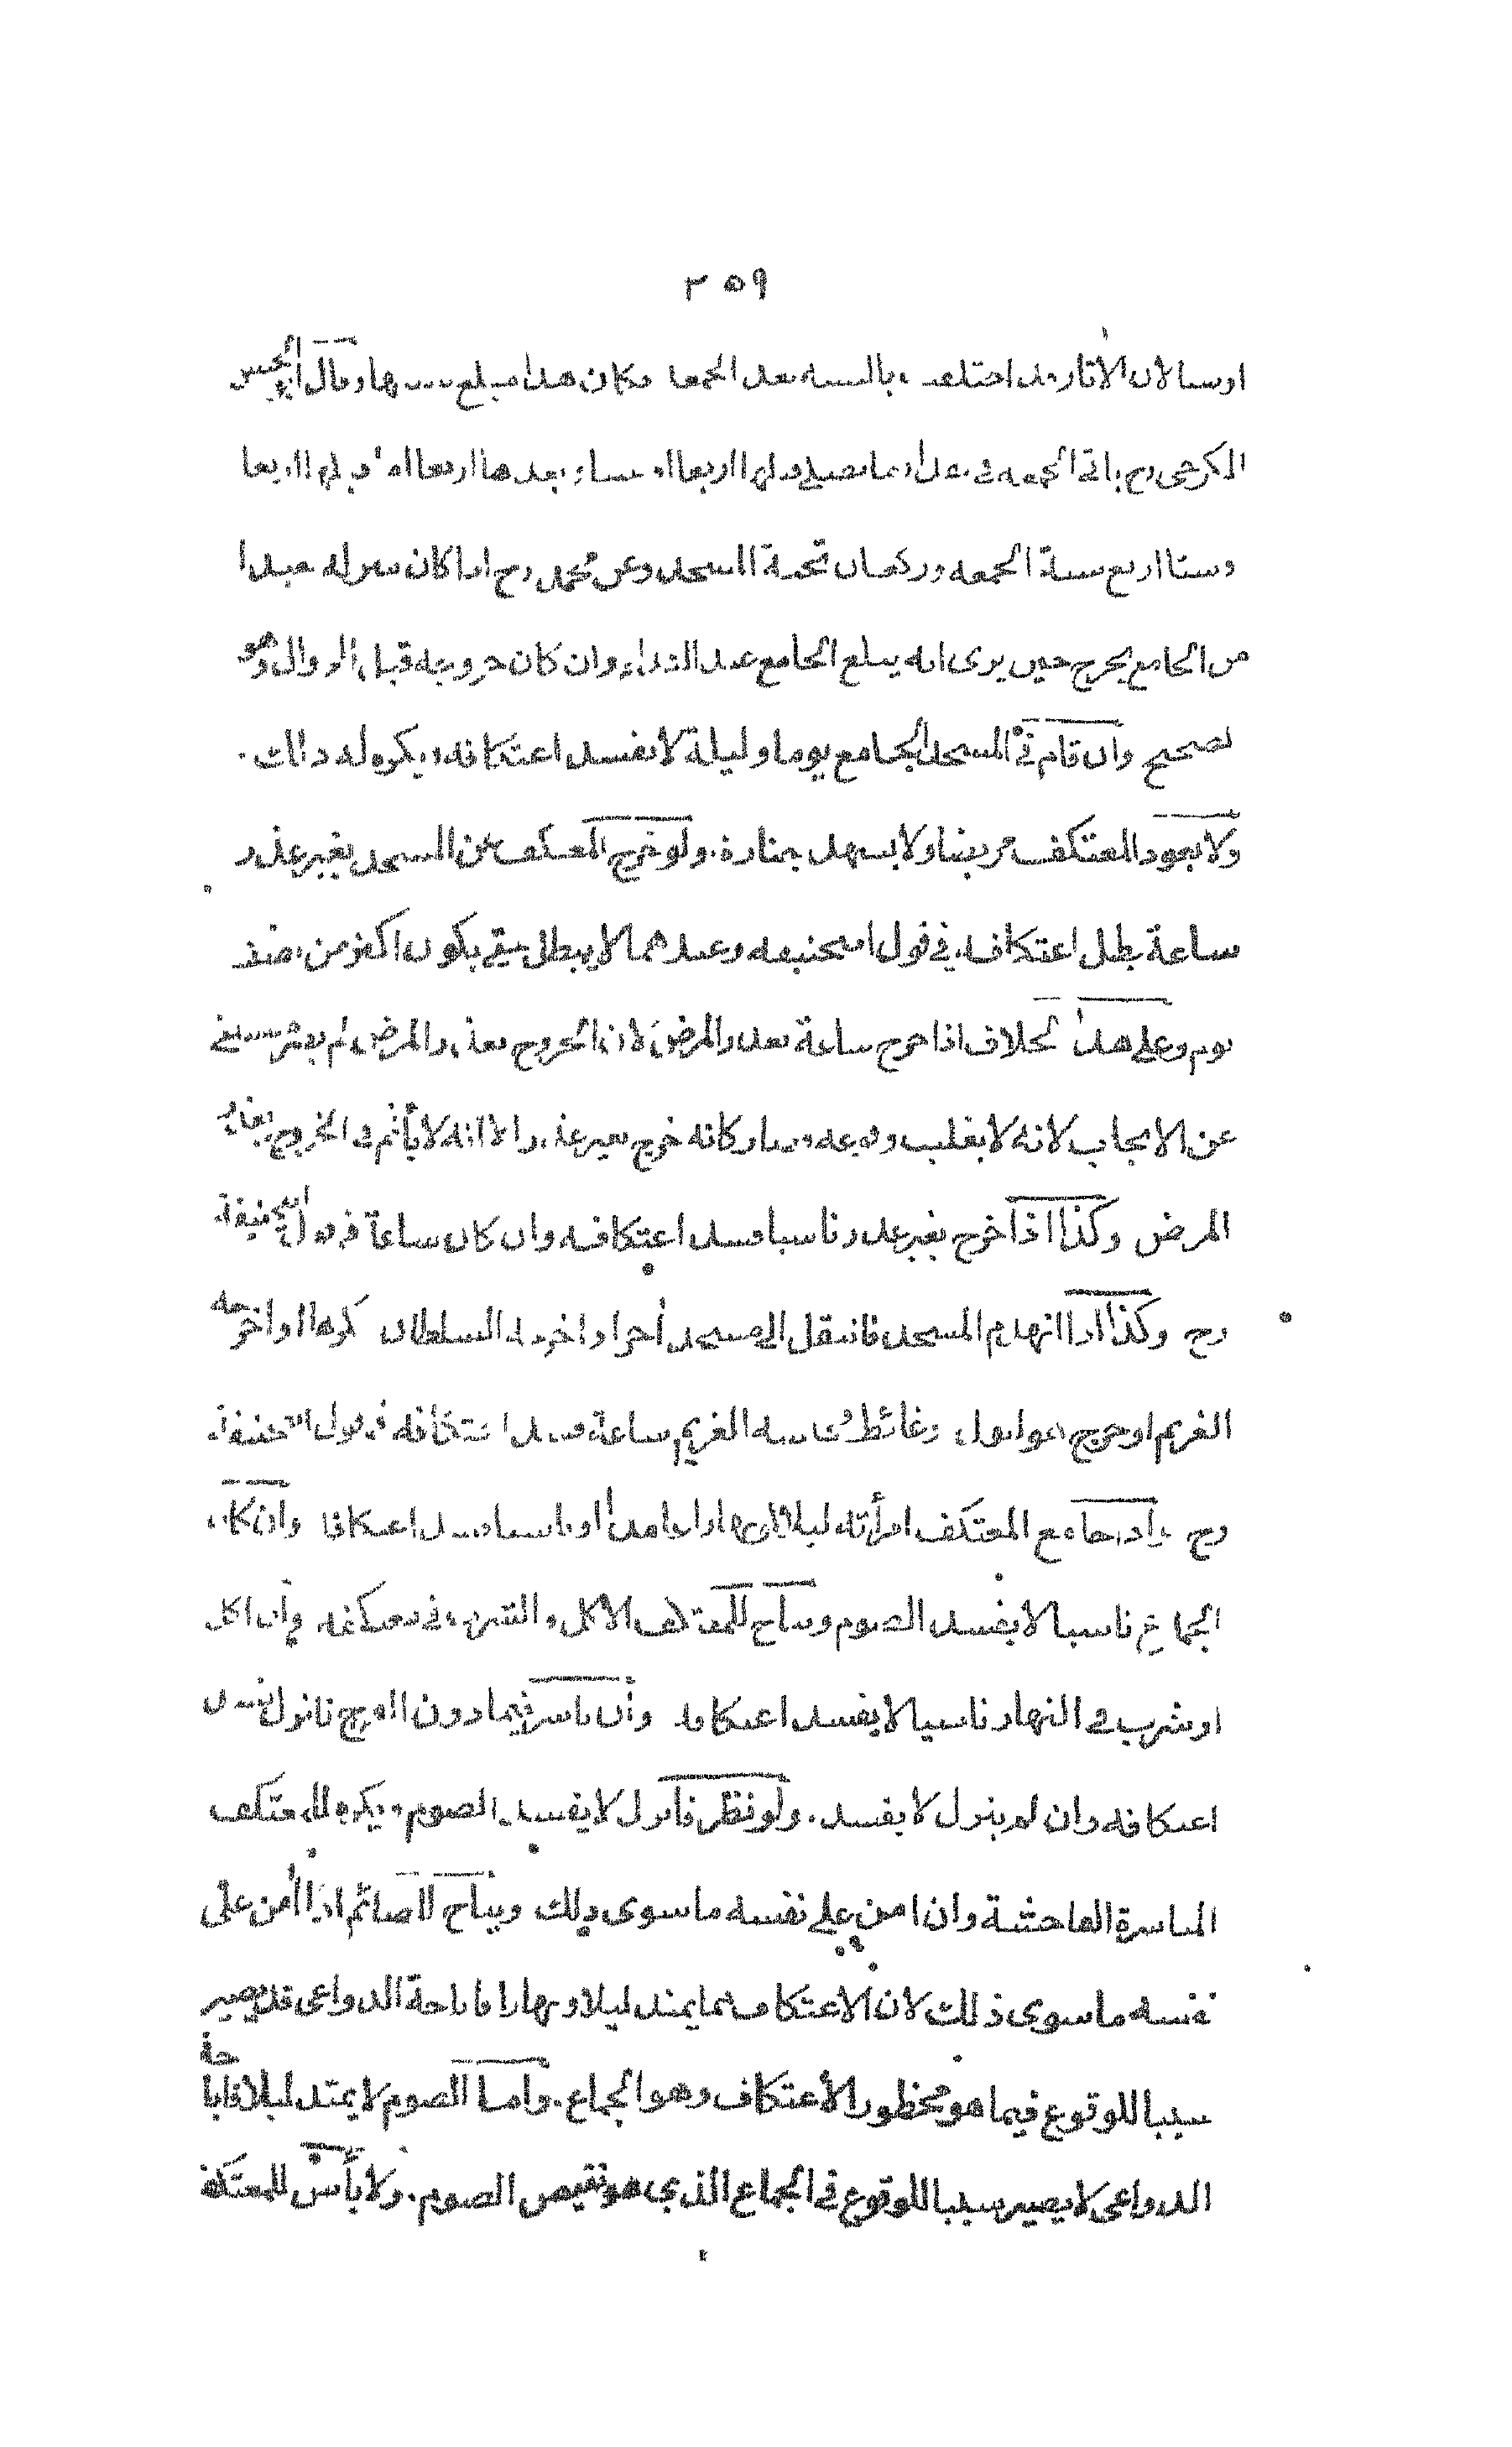 ٢٥٩
اوستا لان الاثار قد اختلفت بالسنة بعد الجمعة فكان هذا مبلغ سننها وقال ابو الحسن
الكرخي رح ياتي الجمعة في مقدار ما يصلي قبلها اربعا او ستا وبعدها اربعا او قبلها اربعا
وستا اربع سنة الجمعة وركعتان تحية المسجد وعن محمد رح اذا كان منزله بعيدا
من الجامع يخرج حين يرى انه يبلغ الجامع عند النداء وان كان خروجه قبل الزوال وهو
لصحيح وان قام في المسجد الجامع يوما وليلة لا يفسد اعتكافه ويكره له ذالك ۰
ولا يعود المعتكف مريضا ولا يشهد جنازة ۰ ولو خرج المعتكف من المسجد بغير عذر
ساعة بطل اعتكافه في قول ابيحنيفه وعندهما لا يبطل حتى يكون اكثر من نصف
يوم وعلى هذا الخلاف اذا خرج ساعة بعذر المرض لان الخروج بعذر المرض لم يصر مستثنى
عن الايجاب لانه لا يغلب وقوعه فصار كانه خرج بغير عذر الا انه لا يأثم في الخروج بعذر
المرض وكذا اذا خرج بغير عذر ناسيا فسد اعتكافه وان كان ساعة في قول ابيحنيفة
رح وكذا اذا انهدم المسجد فانتقل الى مسجد آخر او اخرجه السلطان كرها او اخرجه
الغريم او خرج هو لبول او غائط فحبسه الغريم ساعة فسد اعتكافه في قول ابيحنيفة
رح واذا جامع المعتكف امرأته ليلا او نهارا عامدا او ناسيا فسد اعتكافه وان كان
الجماع ناسيا لا يفسد الصوم ويباح للمعتكف الاكل والشرب في معتكفه وان اكل
او شرب في النهار ناسيا لا يفسد اعتكافه وان باشر فيما دون الفرج فانزل فسد
اعتكافه وان لم ينزل لا يفسد ۰ ولو نظر فانزل لا يفسد الصوم ۰ ويكره للمعتكف
المباشرة الفاحشة وان امن على نفسه ما سوى ذلك ويباح للصائم اذا امن على
نفسه ما سوى ذلك لان الاعتكاف مما يمتد ليلا ونهارا فاباحة الدواعي قد يصير
سببا للوقوع فيما هو محظور الاعتكاف وهو الجماع ۰ واما الصوم لا يمتد ليلا فاباحة
الدواعي لا يصير سببا للوقوع في الجماع الذي هو نقيض الصوم ۰ ولا بأس للمعتكف